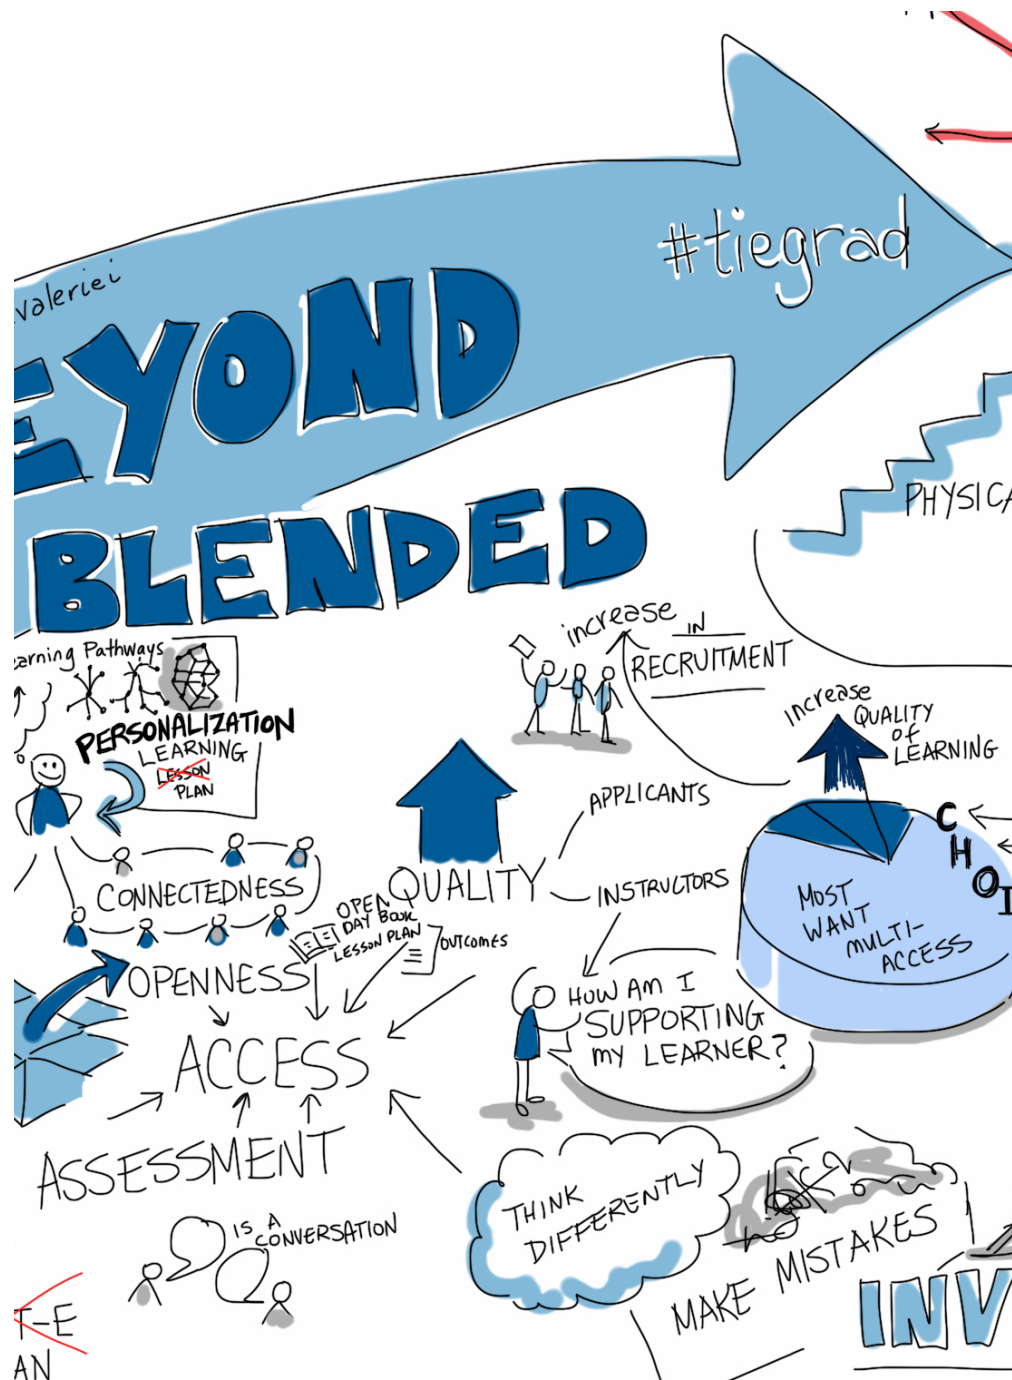 #tiegrad
valeriei
EYOND
BLENDED
PHYSICA
earning Pathways
PERSONALIZATION
LEARNING
LESSON
PLAN
increase
IN
RECRUITMENT
increase
QUALITY
of
LEARNING
APPLICANTS
QUALITY
INSTRUCTORS
CHOI
MOST
WANT
MULTI-
ACCESS
CONNECTEDNESS
OPEN
DAY BOOK
LESSON PLAN
OUTCOMES
OPENNESS
HOW AM I
SUPPORTING
MY LEARNER?
ACCESS
ASSESSMENT
IS A
CONVERSATION
THINK
DIFFERENTLY
MAKE MISTAKES
INV
T-E
AN